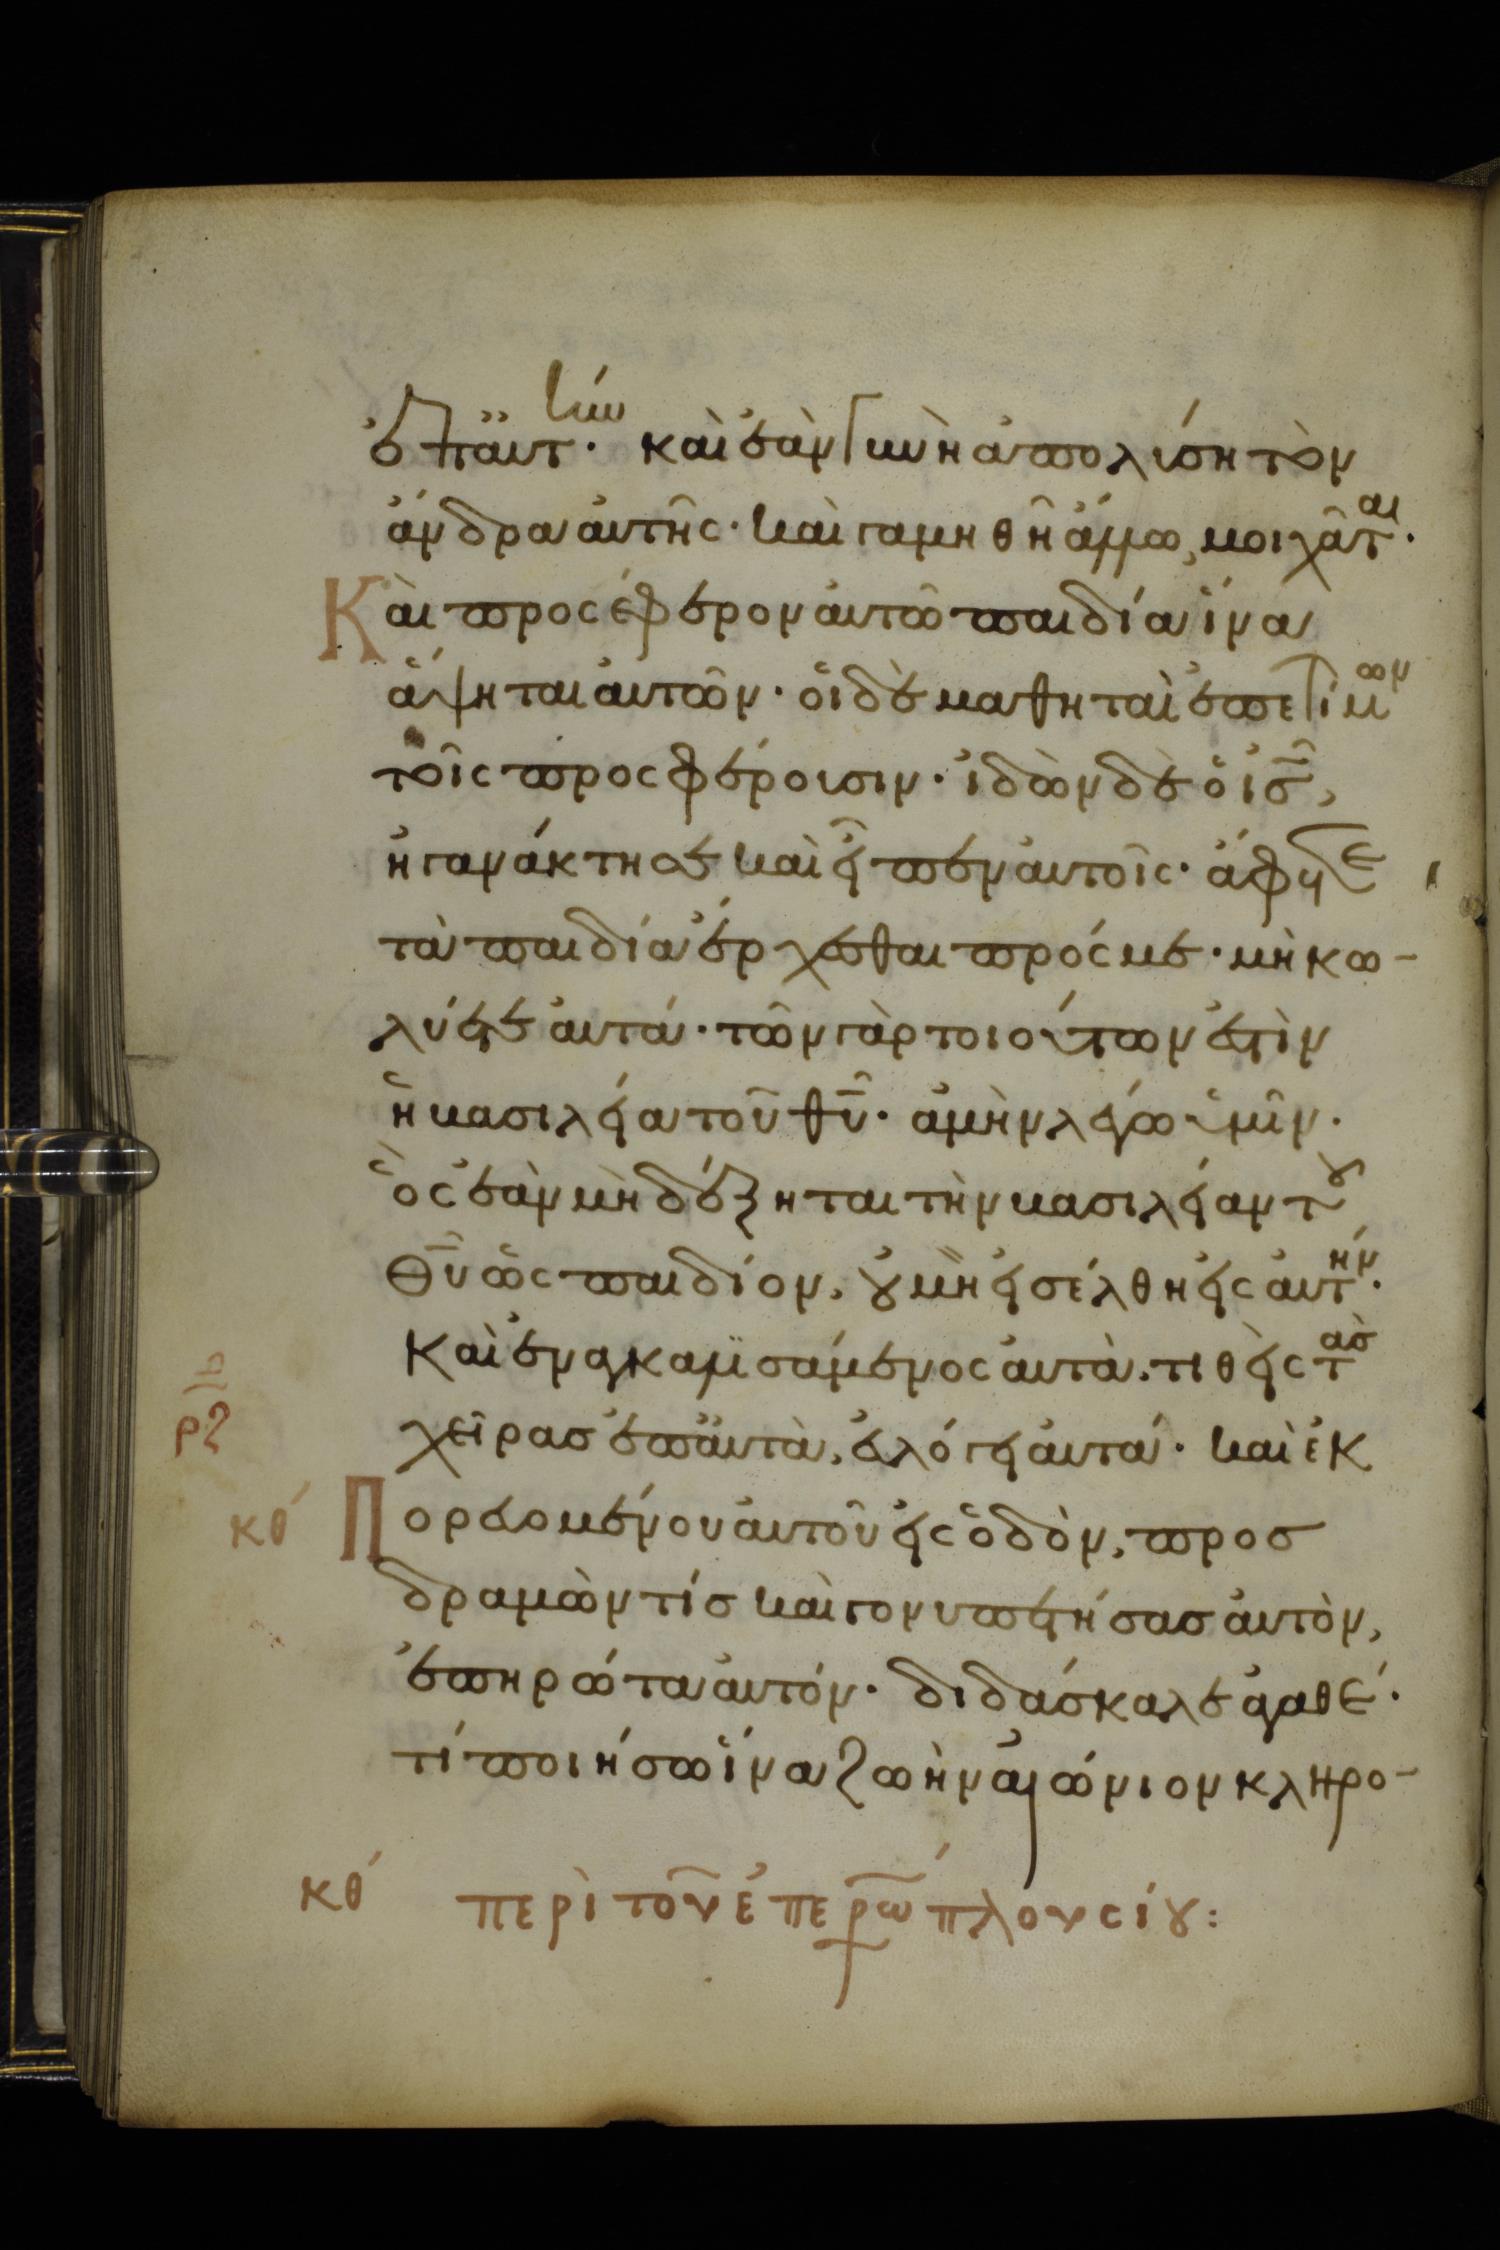 ἐπ' αὐτήν· καὶ ἐὰν γυνὴ ἀπολύση τὸν
ἄνδρα αὐτῆς· καὶ γαμηθῆ ἄλλω, μοιχᾶται·
Καὶ προσέφερον αὐτῶ παιδία ἵνα
ἅψηται αὐτῶν· οἱ δὲ μαθηταὶ ἐπετίμων
τοῖς προσφέρουσιν· ἰδὼν δὲ ὁ ις̅,
ἠγανάκτησε καὶ εἶπεν αὐτοῖς· ἄφετε
τὰ παιδία ἔρχεσθαι πρός με· μὴ κω-
λύετε αὐτά· τῶν γὰρ τοιούτων ἐστὶν
ἡ βασιλεία τοῦ θυ̅· ἀμὴν λέγω ὑμῖν·
ὃς ἐὰν μὴ δέξηται τὴν βασιλείαν τοῦ
θυ̅ ὡς παιδίον, οὐ μὴ εἰσέλθη εἰς αὐτήν·
Καὶ ἐναγκαλισάμενος αὐτὰ, τιθεὶς τὰς
χεῖρας ἐπ' αὐτὰ, εὐλόγει αὐτά· καὶ ἐκ
κθ Πορευομένου αὐτοῦ εἰς ὁδὸν, προσ
δραμὼν τίς καὶ γονυπετήσας αὐτὸν,
ἐπηρώτα αὐτόν· διδάσκαλε ἀγαθέ·
τί ποιήσω ἵνα ζωὴν αἰώνιον κληρο-
κθ περὶ τοῦ ἐπερω πλουσίου: